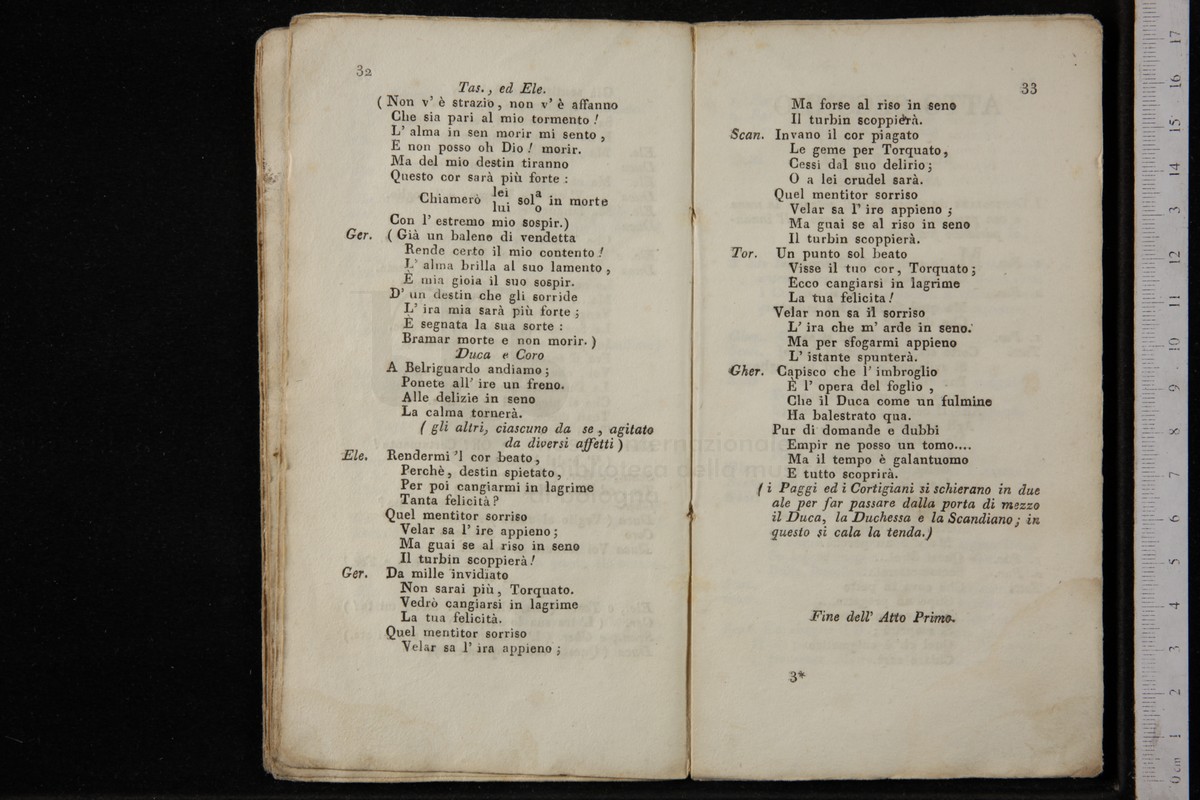 32
Tas., ed Ele.
( Non v' è strazio, non v' è affanno
Che sia pari al mio tormento !
L' alma in sen morir mi sento ,
E non posso oh Dio ! morir.
Ma del mio destin tiranno
Questo cor sarà più forte :
Chiamerò lei/lui sola/o in morte
Con l' estremo mio sospir.)
Ger. ( Già un baleno di vendetta
Rende certo il mio contento !
L' alma brilla al suo lamento ,
È mia gioia il suo sospir.
D' un destin che gli sorride
L' ira mia sarà più forte ;
È segnata la sua sorte :
Bramar morte e non morir. )
Duca e Coro
A Belriguardo andiamo ;
Ponete all' ire un freno.
Alle delizie in seno
La calma tornerà.
( gli altri, ciascuno da se , agitato
da diversi affetti )
Ele. Rendermi 'l cor beato ,
Perchè, destin spietato ,
Per poi cangiarmi in lagrime
Tanta felicità ?
Quel mentitor sorriso
Velar sa l' ire appieno ;
Ma guai se al riso in seno
Il turbin scoppierà !
Ger. Da mille invidiato
Non sarai più , Torquato.
Vedrò cangiarsi in lagrime
La tua felicità.
Quel mentitor sorriso
Velar sa l' ira appieno ;
33
Ma forse al riso in seno
Il turbin scoppierà.
Scan. Invano il cor piagato
Le geme per Torquato ,
Cessi dal suo delirio ;
O a lei crudel sarà.
Quel mentitor sorriso
Velar sa l' ire appieno ;
Ma guai se al riso in seno
Il turbin scoppierà.
Tor. Un punto sol beato
Visse il tuo cor , Torquato ;
Ecco cangiarsi in lagrime
La tua felicita !
Velar non sa il sorriso
L' ira che m' arde in seno.
Ma per sfogarmi appieno
L' istante spunterà.
Gher. Capisco che l' imbroglio
È l' opera del foglio ,
Che il Duca come un fulmine
Ha balestrato qua.
Pur di domande e dubbi
Empir ne posso un tomo....
Ma il tempo è galantuomo
E tutto scoprirà.
( i Paggi ed i Cortigiani si schierano in due
ale per far passare dalla porta di mezzo
il Duca, la Duchessa e la Scandiano ; in
questo si cala la tenda.)
Fine dell' Atto Primo.
3*